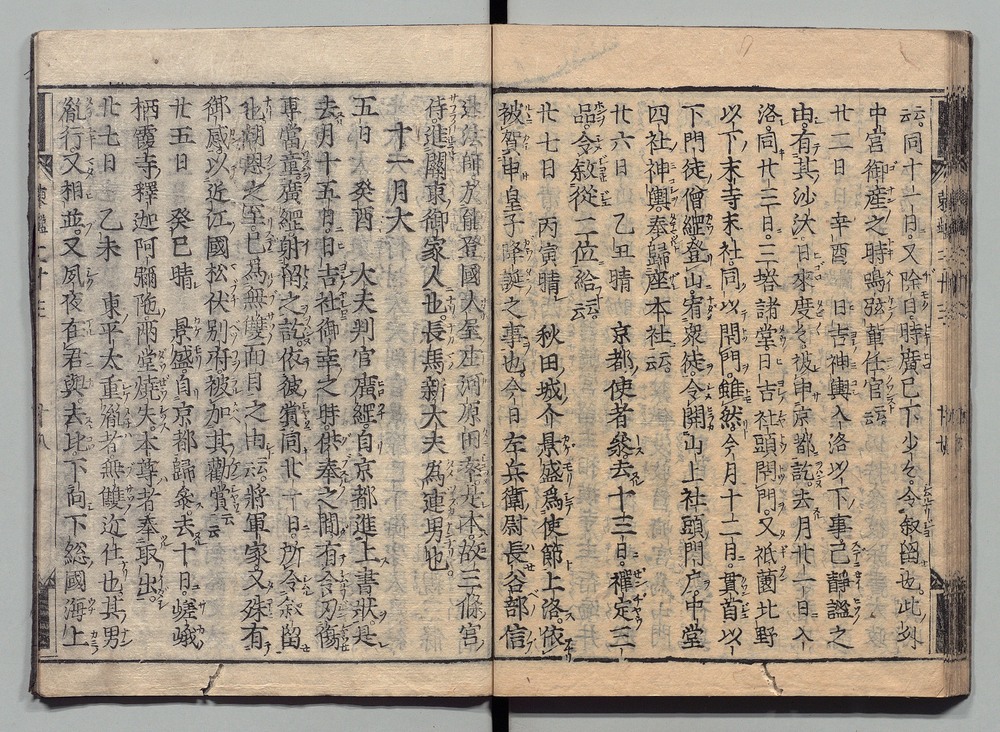 云云同十一日又除目時廣已下少々令叙留也此外
中宮御産之時鳴弦輩任官云云
廿二日 辛酉 日吉神輿入洛以下事已靜謐之
由有其沙汰日來度々被申京都訖去月廿一日入
洛同廿三日三塔諸堂日吉社頭閇門又祇園北野
以下末寺末社同以閇門雖然今月十二日貫首以
下門徒僧綱登山宥衆徒令開山上社頭門戸中堂
四社神輿奉歸座本社云云
廿六日 乙丑晴 京都使者參去十三日禪定三
品令敘從二位給云云
廿七日 丙寅晴 秋田城介景盛爲使節上洛依
被賀申皇子降誕之事也今日左兵衛尉長谷部信
連法師於能登國大屋庄河原田卒是本故三條宮
侍進關東御家人也長馬新大夫為連男也
十一月大
五日 癸酉 大夫判官廣綱自京都進上書狀是
去月十五日日吉社御幸之時供奉之間有合刃傷
專當童廣綱射招之訖依彼賞同廿一日所令叙留
也朝恩之至已爲無雙面目之由云云將軍家又殊有
御感以近江國松伏別府被加其勸賞云云
廿五日 癸巳晴 景盛自京都歸參去十日嵯峨
栖霞寺釋迦阿彌陁兩堂燒失本尊者奉取出
廿七日 乙未 東平太重胤者無雙近仕也其男
胤行又相並又夙夜在君與去比下向下総國海上
東鑑二十三
十八